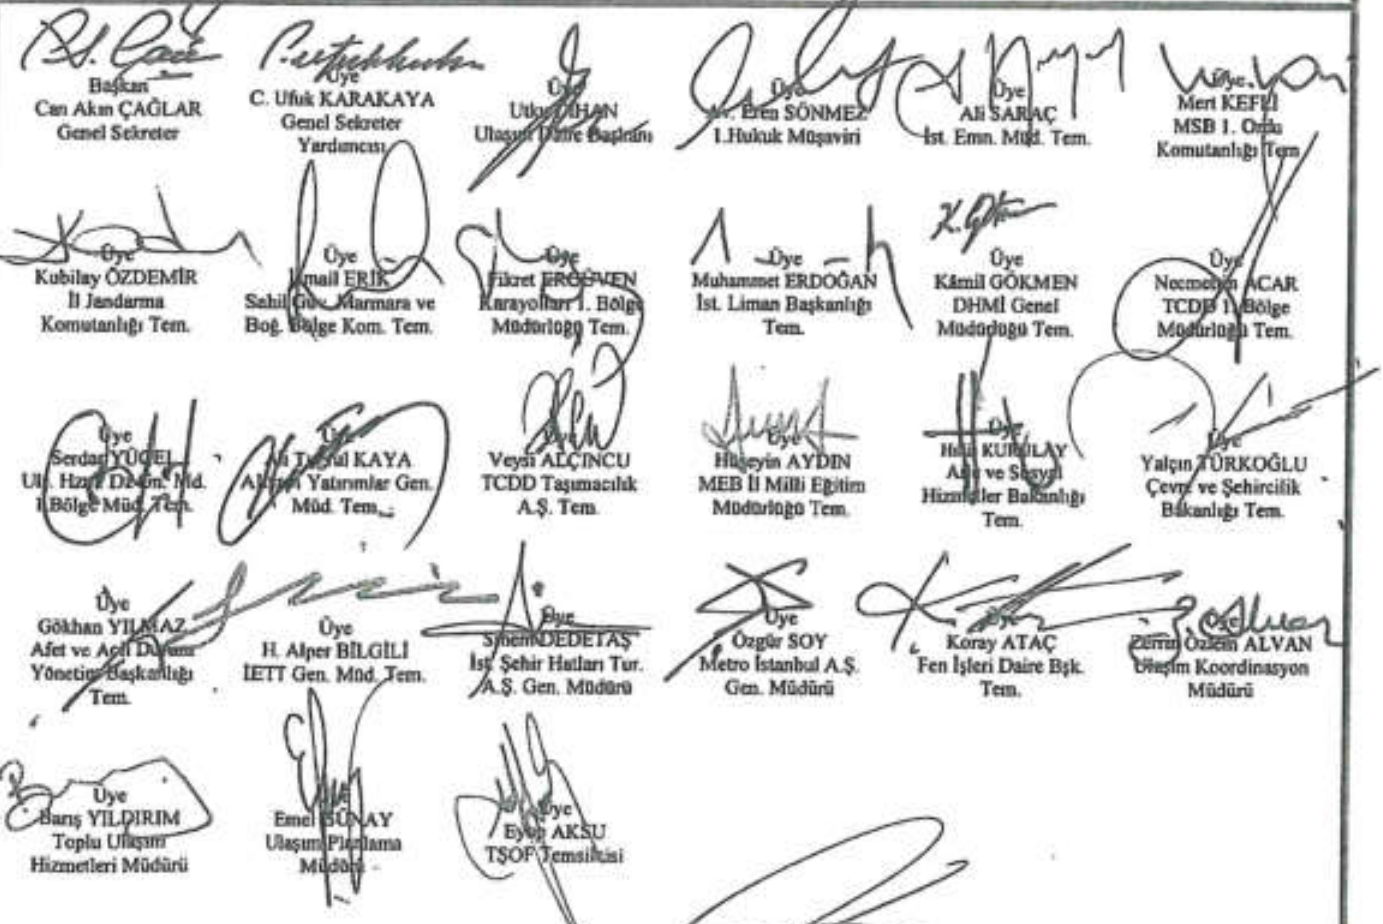 Başkan
Can Akın ÇAĞLAR
Genel Sekreter
Üye
C. Ufuk KARAKAYA
Genel Sekreter
Yardımcısı
Üye
Utku
Ulaşım Daire Başkanı
Üye
Av. Eren SÖNMEZ
1.Hukuk Müşaviri
Üye
Ali SARAÇ
İst. Emn. Müd. Tem.
Üye
Mert KEFLİ
MSB 1. Ordu
Komutanlığı Tem
Üye
Kubilay ÖZDEMİR
İl Jandarma
Komutanlığı Tem.
Üye
İsmail ERİK
Sahil Güv. Marmara ve
Boğ. Bölge Kom. Tem.
Üye
Fikret ERGÜVEN
Karayolları 1. Bölge
Müdürlüğü Tem.
Üye
Muhammet ERDOĞAN
İst. Liman Başkanlığı
Tem.
K. Gökmen
Üye
Kâmil GÖKMEN
DHMİ Genel
Müdürlüğü Tem.
Üye
Necmettin ACAR
TCDD 1. Bölge
Müdürlüğü Tem.
Üye
Serdar YÜCEL
Ulş. Hzm. Md.
1.Bölge Müd. Tem.
Üye
KAYA
Altyapı Yatırımlar Gen.
Müd. Tem.
Üye
Veysi ALÇINCU
TCDD Taşımacılık
A.Ş. Tem.
Üye
Hüseyin AYDIN
MEB İl Milli Eğitim
Müdürlüğü Tem.
Üye
Aile ve Sosyal
Hizmetler Bakanlığı
Tem.
Üye
Yalçın TÜRKOĞLU
Çevre ve Şehircilik
Bakanlığı Tem.
Üye
Gökhan YILMAZ
Afet ve Acil Durum
Yönetim Başkanlığı
Tem.
Üye
H. Alper BİLGİLİ
İETT Gen. Müd. Tem.
Üye
Sinem DEDETAŞ
İst. Şehir Hatları Tur.
A.Ş. Gen. Müdürü
Üye
Özgür SOY
Metro İstanbul A.Ş.
Gen. Müdürü
Üye
Koray ATAÇ
Fen İşleri Daire Bşk.
Tem.
Üye
Özlem ALVAN
Ulaşım Koordinasyon
Müdürü
Üye
Barış YILDIRIM
Toplu Ulaşım
Hizmetleri Müdürü
Üye
Emel GÜNAY
Ulaşım Planlama
Müdürü
Üye
Eyüp AKSU
TŞOF Temsilcisi